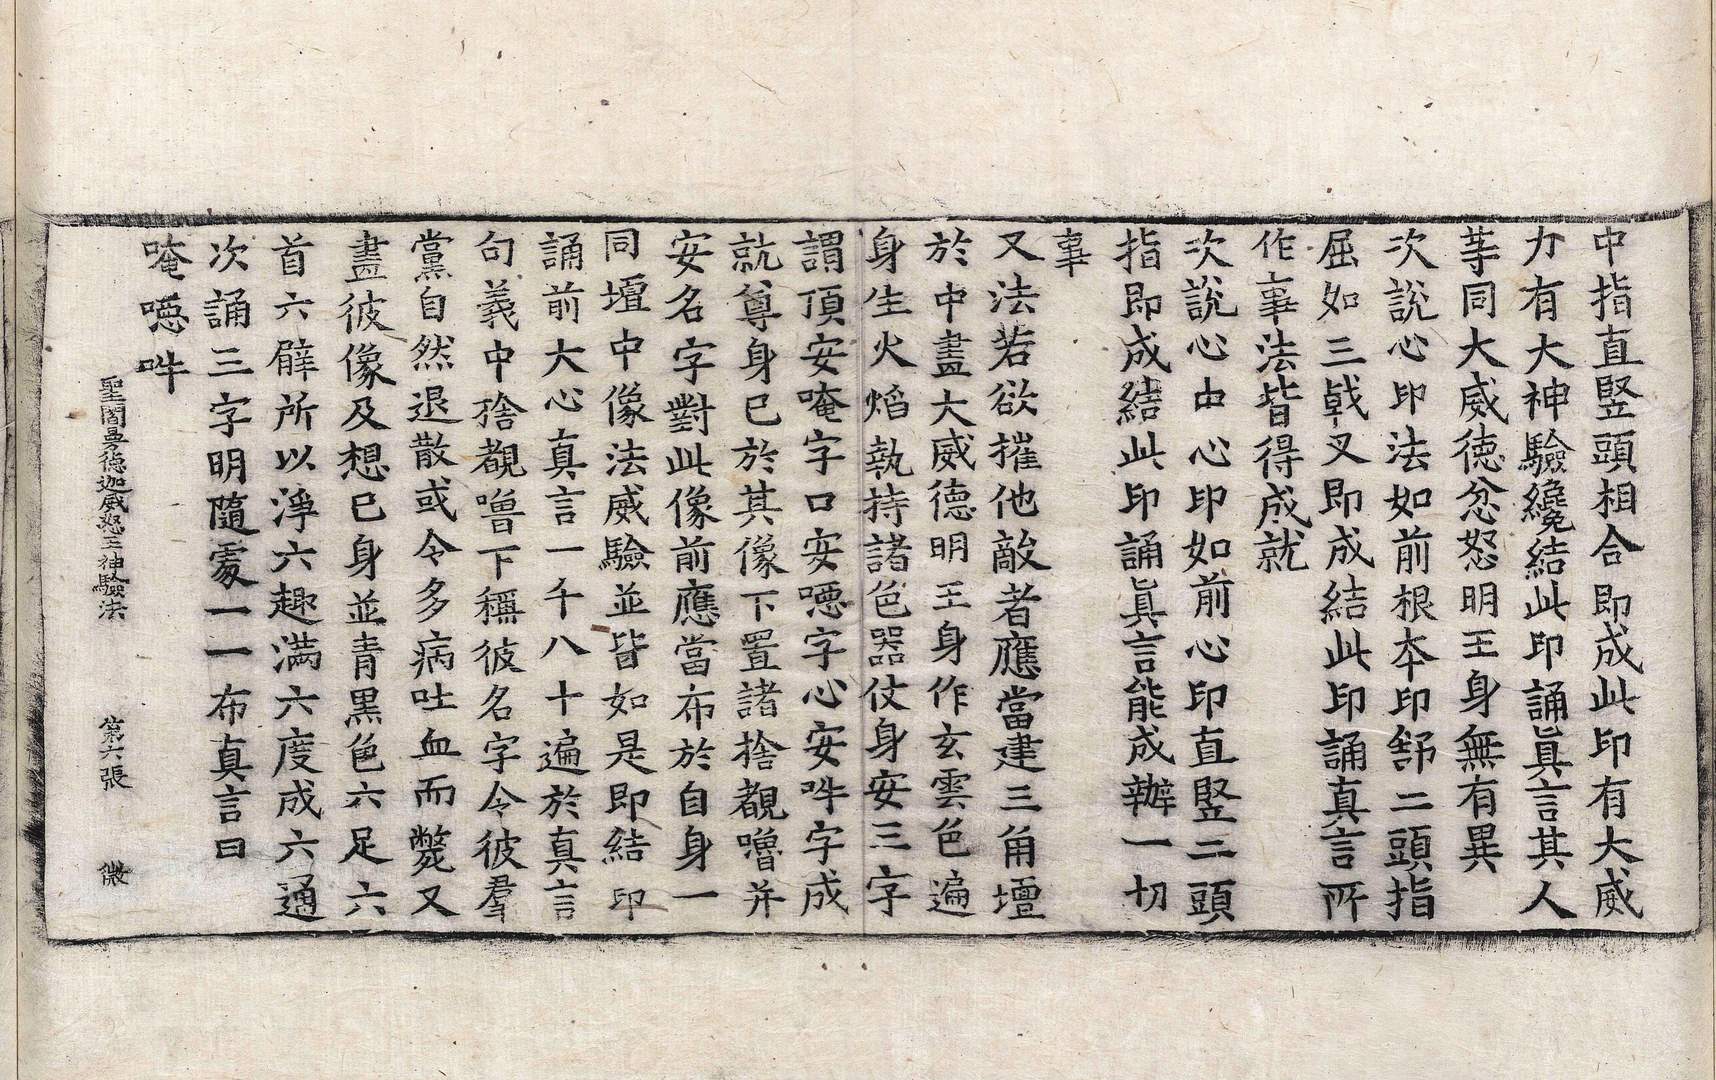 中指直竪頭相合即成此印有大威
力有大神驗纔結此印誦眞言其人
䓁同大威徳忿怒明王身無有異
次説心印法如前根本印舒二頭指
屈如三戟叉即成結此印誦真言所
作事法皆得成就
次説心中心印如前心印直竪二頭
指即成結此印誦眞言能成辦一切
事
又法若欲摧他敵者應當建三角壇
於中畫大威德明王身作玄雲色遍
身生火焔執持諸色器仗身安三字
謂頂安唵字口安𫫇字心安吽字成
就尊身已於其像下置諸捨覩嚕并
安名字對此像前應當布於自身一
同壇中像法威驗並皆如是即結印
誦前大心真言一千八十遍於真言
句義中捨覩嚕下稱彼名字令彼羣
黨自然退散或令多病吐血而斃又
畫彼像及想已身並青黒色六足六
首六臂所以淨六趣满六度成六通
次誦三字明隨處一一布真言曰
唵𫫇吽
聖閻曼徳迦威怒王神驗法 第六張 微